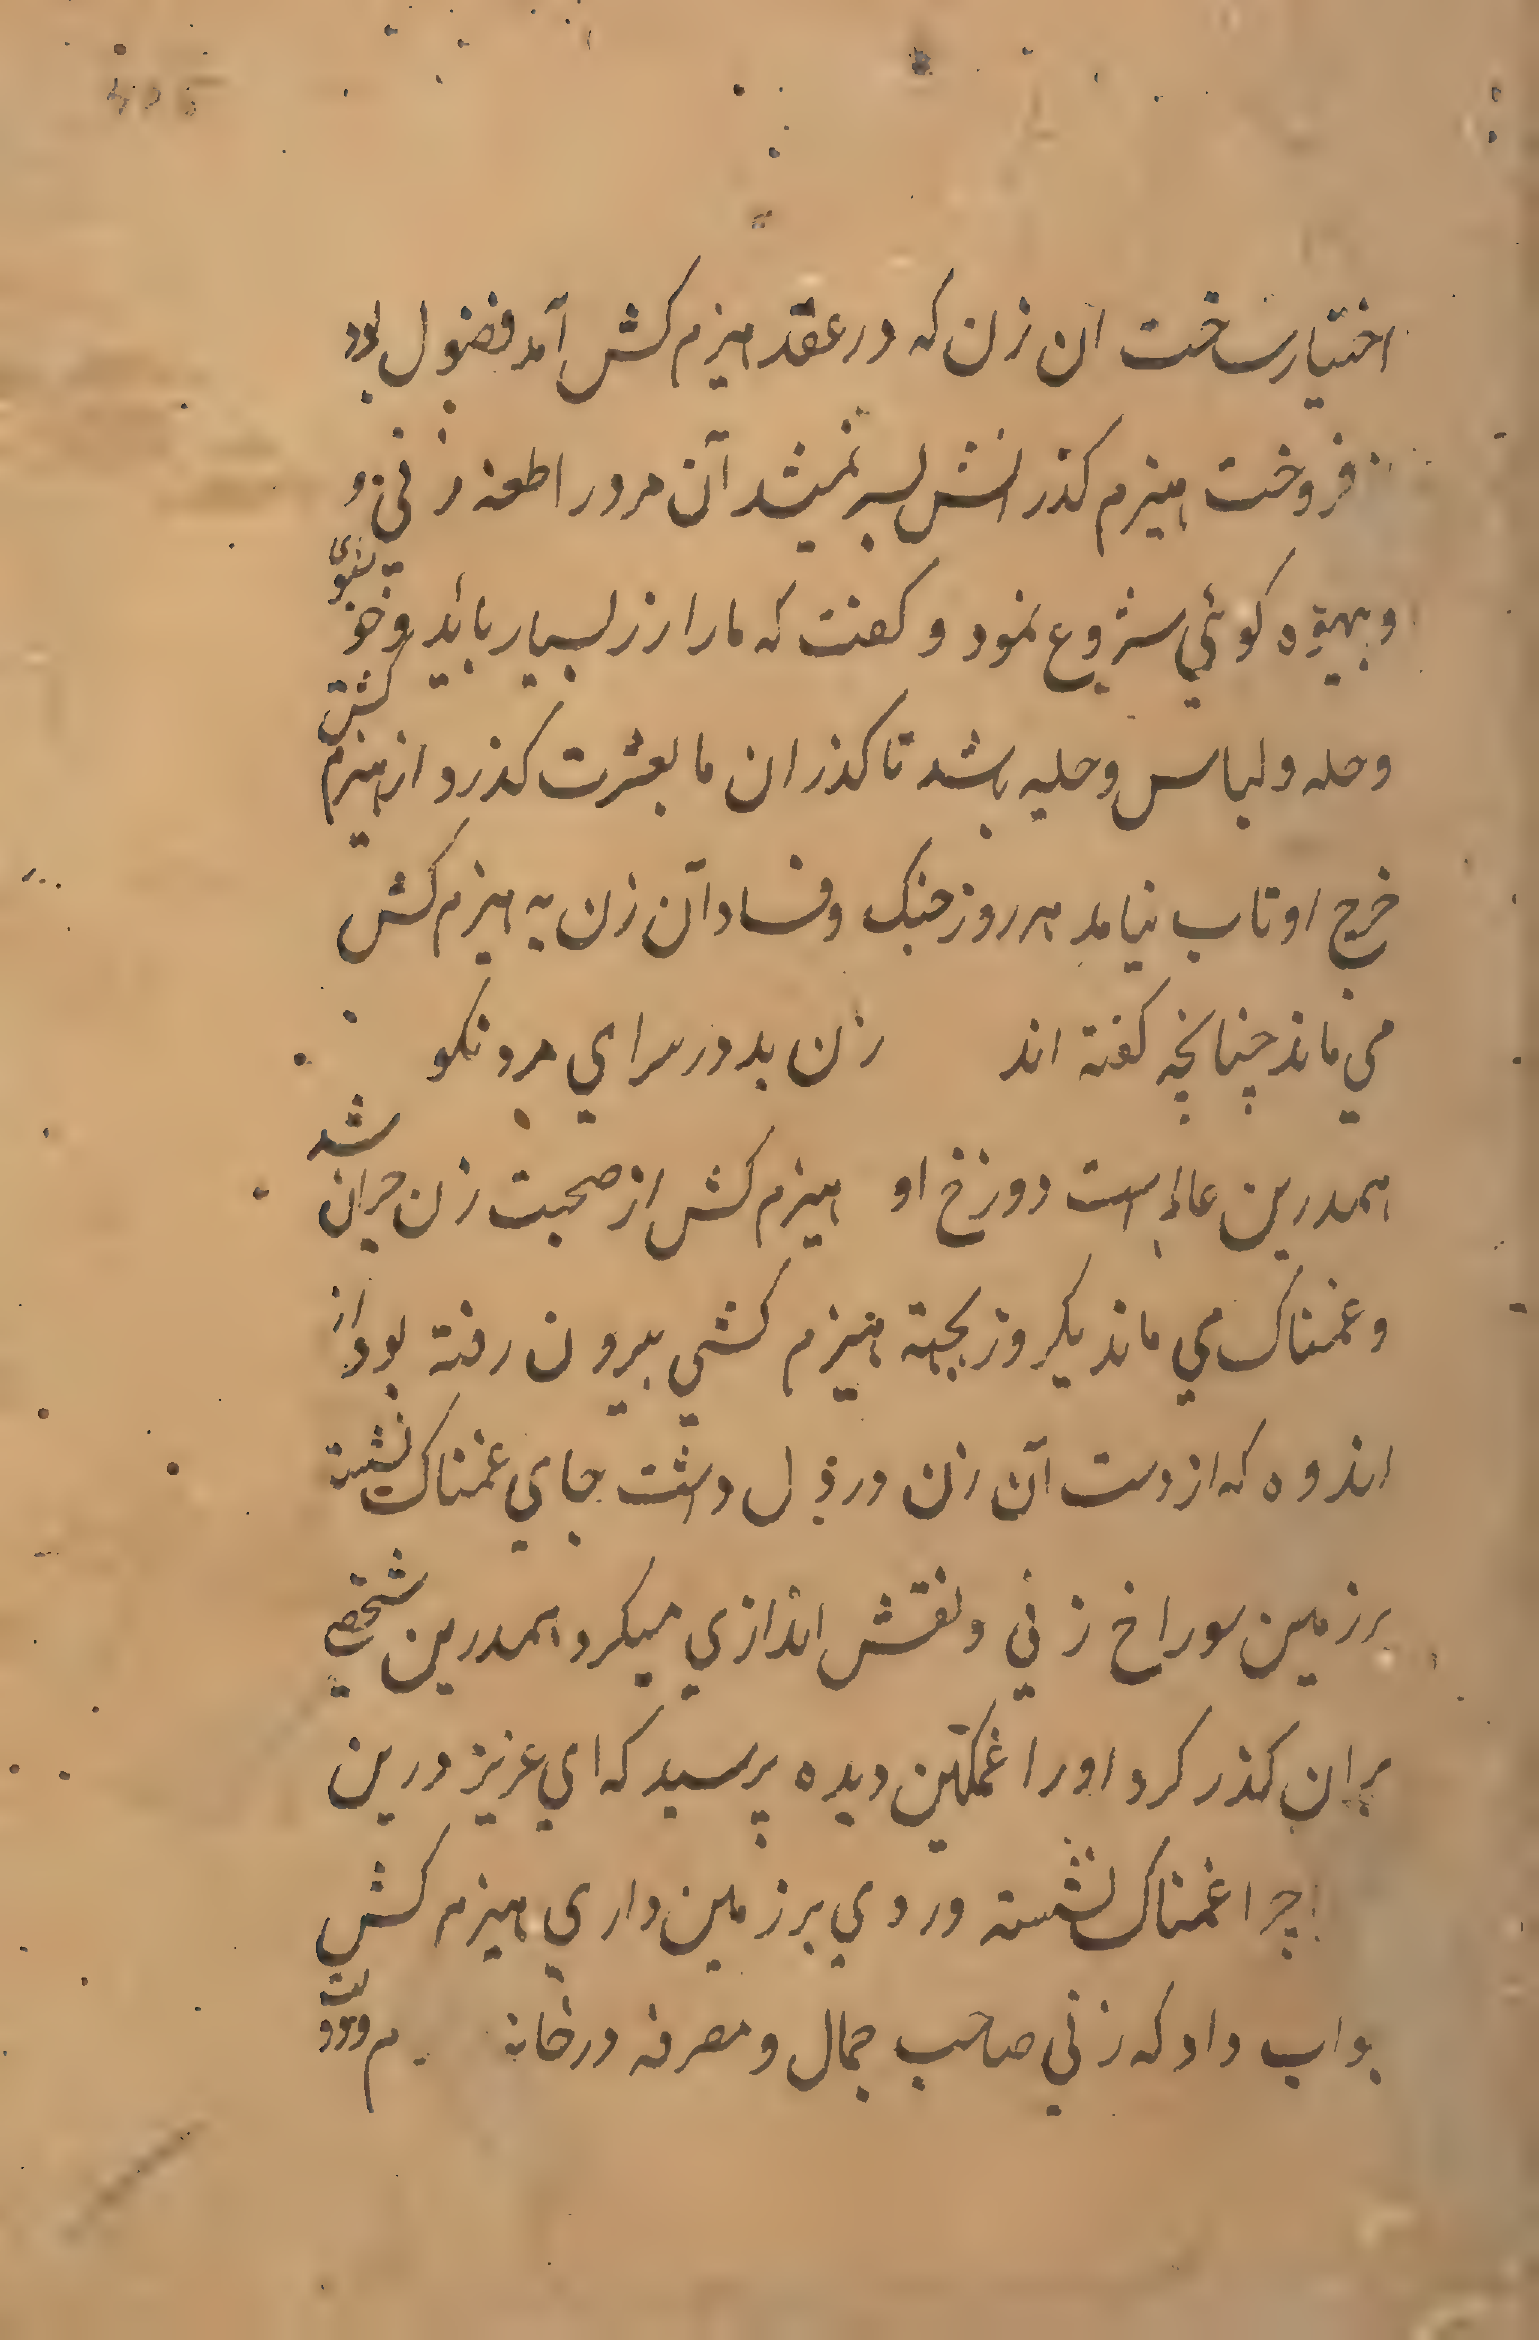 اختیار ساخت ان زن که در عقد هیزم کش آمد فضول بود
از فروخت هیزم کذرانش بسر نمیشد آن مرد را طعنه زنی و
و بیهوده کوئی شروع نمود و کفت که ما را زر بسیار باید و خوشبوی
و حله و لباس و حلیه باشد تا کذران ما بعشرت کذرد از هیزم کشتی
خرج او تاب نیامد هر روز جنک و فساد آن زن به هیزم کش
می ماند چنانچه کفته اند زن بد در سرای مرد نکو
همدرین عالم است دوزخ او هیزم کش از صحبت زن حیران شد
و غمناک می ماند یکروز بجهة هیزم کشی بیرون رفته بود از
اندوه که از دست آن زن در دل داشت جای غمناک نشسته
بر زمین سوراخ زنی و نقش اندازی میکرد همدرین شخصی
بران کذر کرد او را غمکین دیده پرسید که ای عزیز درین
چرا غمناک نشسته و روی بر زمین داری هیزم کش
جواب داد که زنی صاحب جمال و مصرفه در خانه